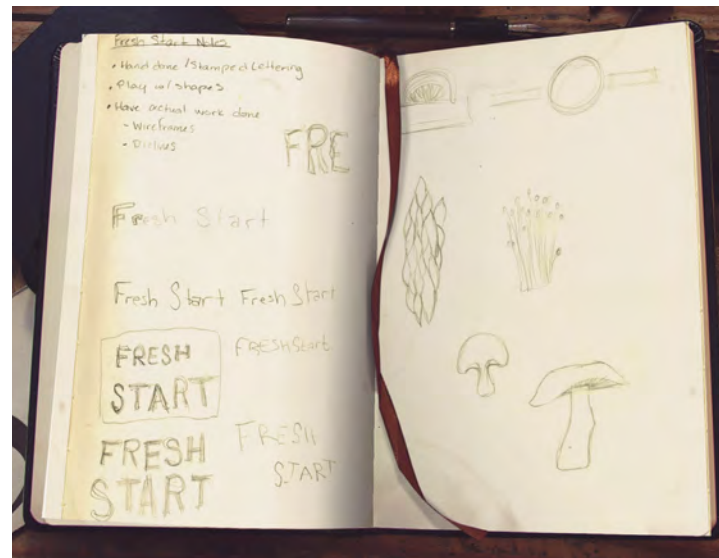 Fresh Start Notes
• Hand done / Stamped Lettering
• Play w/ shapes
• Have actual work done
- Wireframes
FRE
Fresh Start
Fresh Start Fresh Start
FRESH
START
FRESHStart
FRESH
START
FRESH
START